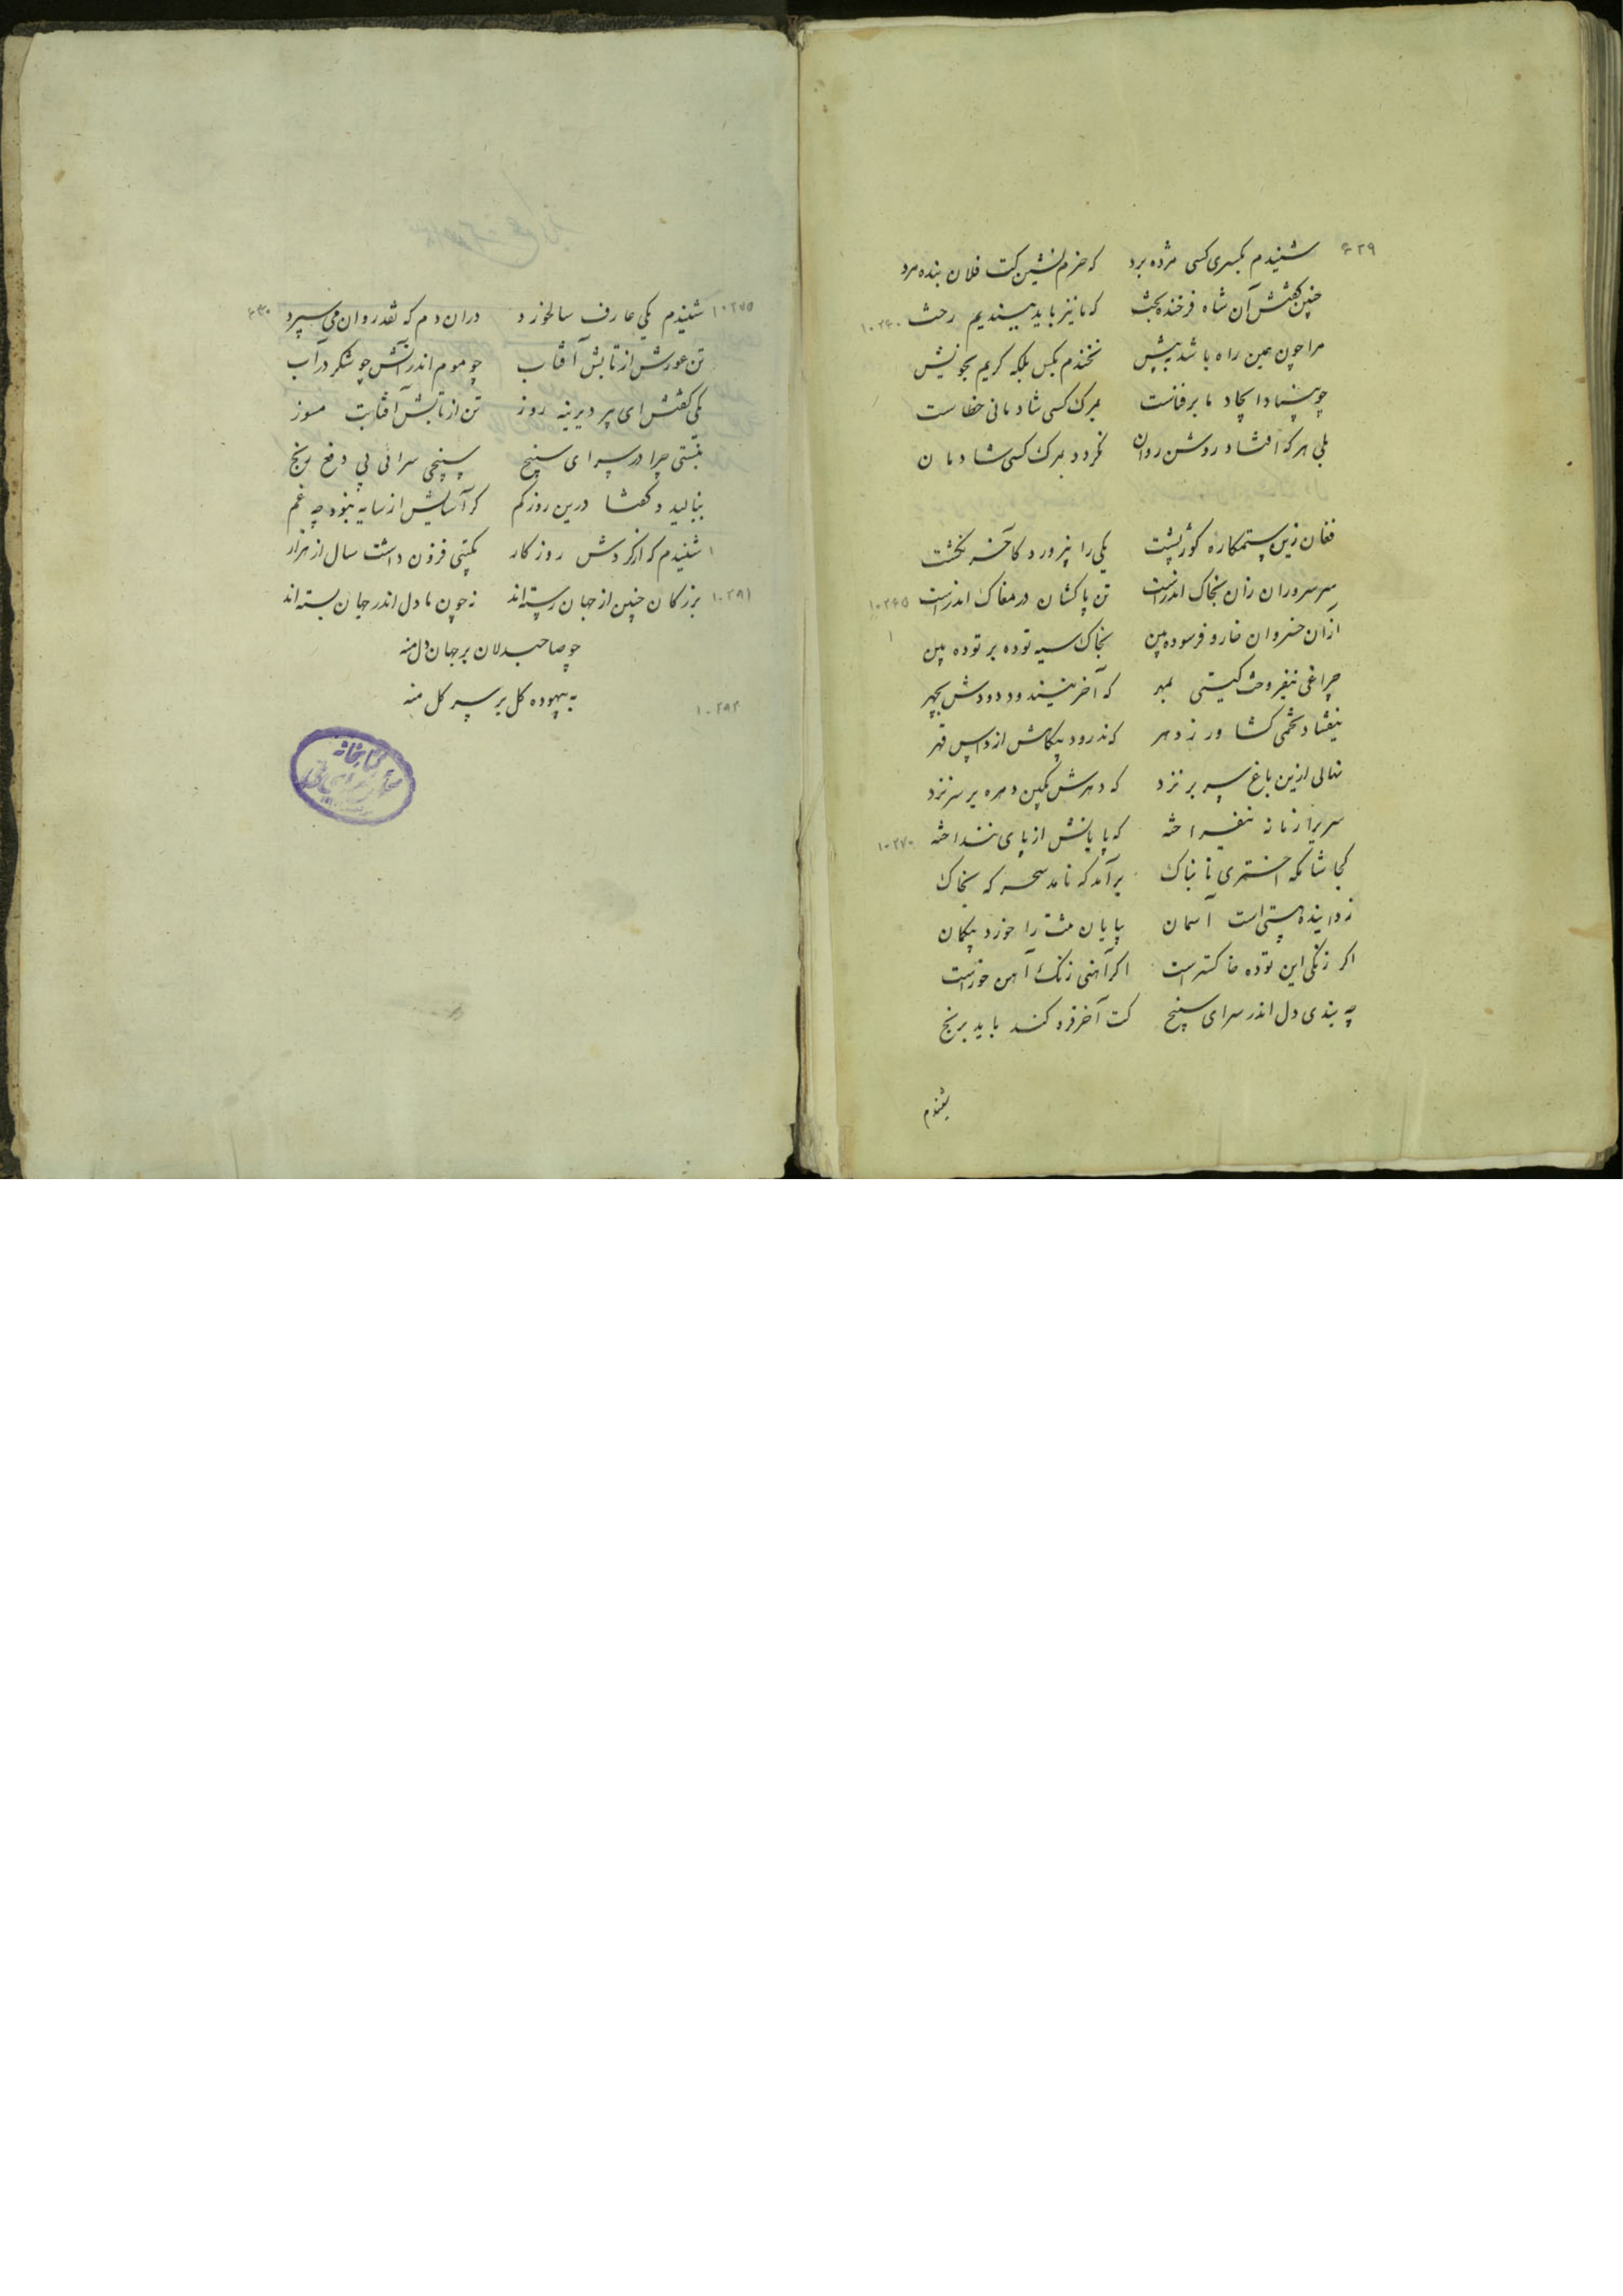 ۶۲۹
شنیدم بکسری کسی مژده برد که خرم نشین کت فلان بنده مرد
چنین گفتش آن شاه فرخنده بخت که ما نیز باید ببندیم رخت
۱۰۲۶۰
مرا چون همین راه باشد به پیش نخندم بکس بلکه گریم بخویش
چو بنیاد ایجاد ما بر فناست بمرگ کسی شادمانی خطاست
بلی هر که افتاد روشن روان نگردد بمرگ کسی شادمان
فغان زین ستمکاره کوژپشت یکی را نپرورد کآخر نکشت
سر سروران زان بخاک اندرست تن پاکشان در مغاک اندرست
۱۰۲۶۵
از آن خسروان خار و فرسوده بین بخاک سیه توده بر توده بین
چراغی نیفروخت گیتی بمهر که آخر نیندود دودش بچهر
نیفشاد تخمی کشاورز دهر که ندرود بیگاهش از داس قهر
نهالی ازین باغ سر بر نزد که دهرش بکین دهره بر سر نزد
سریرا زمانه نیفراخته که پایانش از پای ننداخته
۱۰۲۷۰
کجا شامگه اختری تابناک برآمد که نامد سحرگه بخاک
زداینده هستی است آسمان بپایان مشت را خورد بیگمان
اگر زنگی این توده خاکسترست اگر آهنی زنگ آهن خورست
چه بندی دل اندر سرای سپنج کت آخر فرو کند باید برنج
شنیدم
۶۳۰
۱۰۲۷۵
شنیدم یکی عارف سالخورد دران دم که نقد روان می سپرد
تن عورش از تابش آفتاب چو موم اندر آتش چو شکر در آب
یکی گفتش ای پیر دیرینه روز تن از تابش آفتابت مسوز
نبستی چرا در سرای سپنج سپنجی سرائی پی دفع رنج
بنالید و گفتا درین روز کم گر آسایش از سایه نبود چه غم
شنیدم که از گردش روزگار بگیتی فزون داشت سال از هزار
۱۰۲۸۱
بزرگان چنین از جهان رسته‌اند نه چون ما دل اندر جهان بسته‌اند
چو صاحبدلان بر جهان دل منه
به بیهوده گل بر سر گل منه
۱۰۲۸۲
کتابخانه